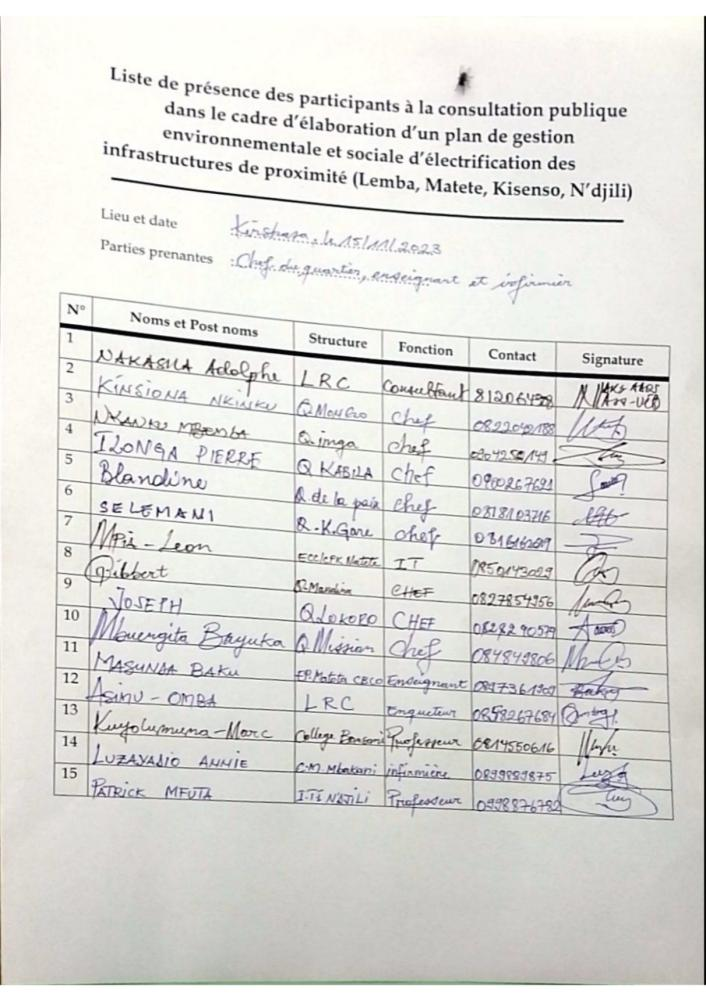 Liste de présence des participants à la consultation publique
dans le cadre d'élaboration d'un plan de gestion
environnementale et sociale d'électrification des
infrastructures de proximité (Lemba, Matete, Kisenso, N'djili)
Lieu et date Kinshasa, le 15/11/2023
Parties prenantes : Chef du quartier, enseignant et infirmier
N° Noms et Post noms Structure Fonction Contact Signature
1 NAKASILA Adolphe LRC Consultant
2 KINSIONA NKINKU Q Mongo chef 0822042188
3 NKANKU MBOMBA Q inga chef
4 ILONGA PIERRE Q KABILA chef 0900267691
5 Blandine Q de la paix chef 0818103716
6 SELEMANI Q. K. Gare chef
7 Mpia - Leon Matete IT 0850143029
8 Gibbert CHEF 0827854956
9 JOSEPH Q LOKORO CHEF 0828290579
10 Mbuengita Bayuka Q Mission chef 084849806
11 MASUNDA BAKU EP. Matete CBCO Enseignant
12 ASIMU - OMBA LRC Enqueteur 0858267684
13 Kuyolumuna - Marc College Professeur 0814550616
14 LUZAYADIO ANNIE C.M. Mbakani infirmière 0899889875
15 PATRICK MFUTA I.TI NDJILI Professeur 0998876782